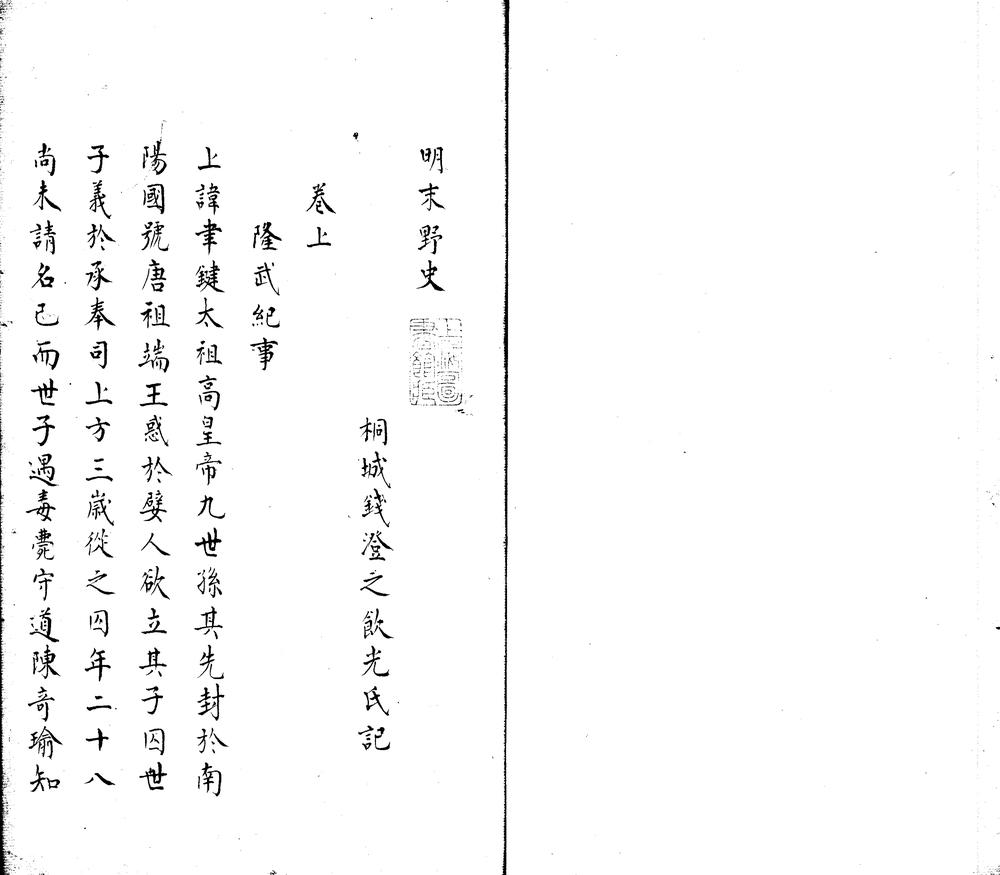 明末野史
桐城錢澄之飲光氏記
卷上
隆武紀事
上諱聿鍵太祖高皇帝九世孫其先封於南
陽國號唐祖端王惑於嬖人欲立其子囚世
子義於承奉司上方三歲從之囚年二十八
尚未請名已而世子遇毒薨守道陳奇瑜知